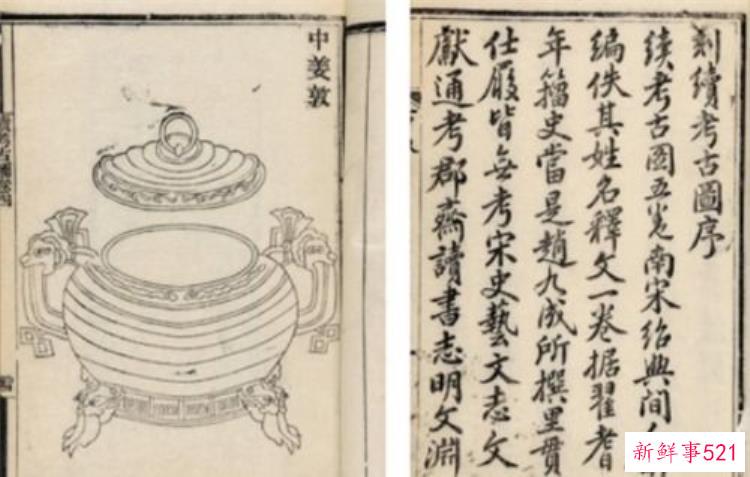 中姜敦
刻續考古圖序
續考古圖五卷南宋紹興間
編佚其姓名釋文一卷據翟耆
年籀史當是趙九成所撰里貫
仕履皆無考宋史藝文志文
獻通考郡齋讀書志明文淵
新鲜事521